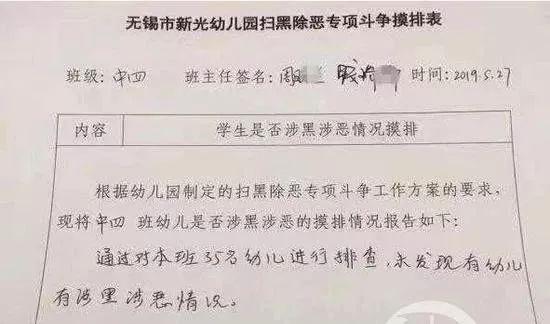 无锡市新光幼儿园扫黑除恶专项斗争摸排表
班级：中四 班主任签名：周 时间：2019.5.27
内容 学生是否涉黑涉恶情况摸排
根据幼儿园制定的扫黑除恶专项斗争工作方案的要求，
现将中四班幼儿是否涉黑涉恶的摸排情况报告如下：
通过对本班35名幼儿进行排查，未发现有幼儿
有涉黑涉恶情况。